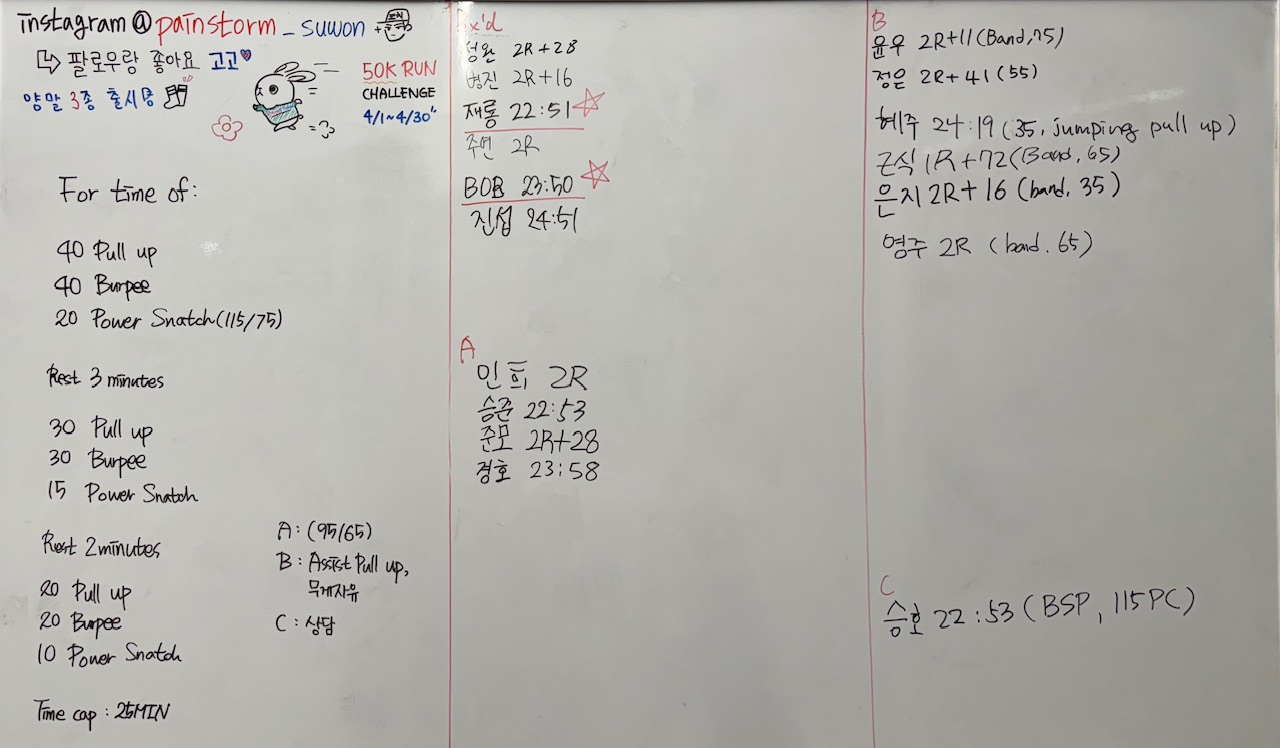 instagram @painstorm_suwon +
↳ 팔로우랑 좋아요 고고
양말 3종 출시중
50K RUN
CHALLENGE
4/1~4/30
For time of:
40 Pull up
40 Burpee
20 Power Snatch (115/75)
Rest 3 minutes
30 Pull up
30 Burpee
15 Power Snatch
Rest 2 minutes
20 Pull up
20 Burpee
10 Power Snatch
Time cap : 25MIN
A : (95/65)
B : Assist Pull up,
무게자유
C : 상담
Rx'd
성완 2R+28
병진 2R+16
재룡 22:51
주연 2R
BOB 23:50
진섭 24:51
A
인희 2R
승준 22:53
준모 2R+28
경호 23:58
B
윤우 2R+11 (Band, 75)
정은 2R+41 (55)
혜주 24:19 (35, jumping pull up)
근식 1R+72 (Band, 65)
은지 2R+16 (band, 35)
영주 2R (band. 65)
C
승호 22:53 (BSP, 115PC)